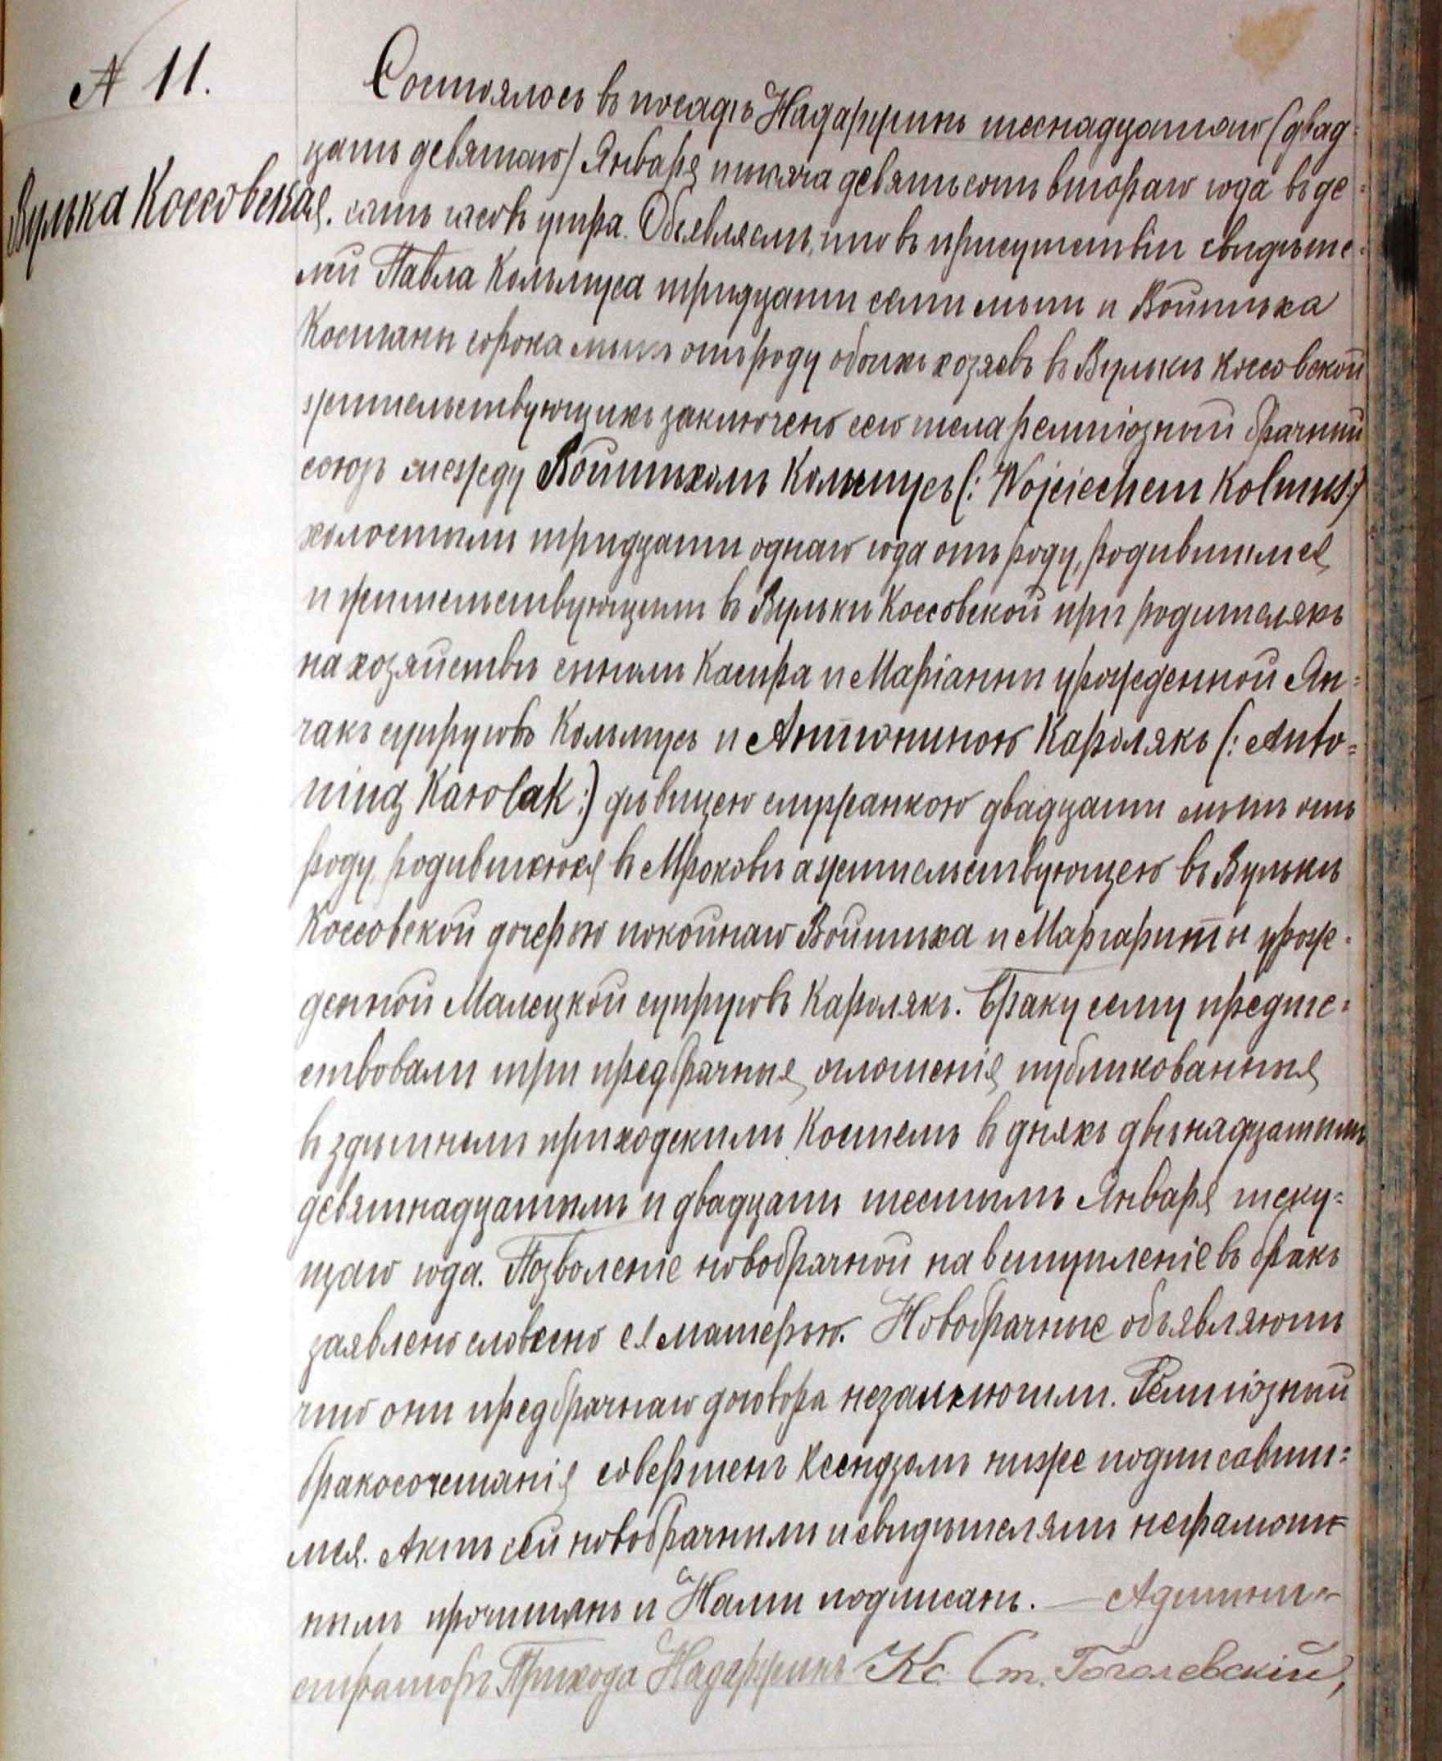 № 11.
Вулька Коссовская.
Состоялось въ посадѣ Надаржинъ шеснадцатаго (двад=
цать девятаго) Января тысяча девятьсотъ втораго года въ де=
сять часовъ утра. Объявляемъ, что въ присутствіи свидѣте=
лей Павла Кольмуса тридцати семи лѣтъ и Войтѣха
Костаны сорока лѣтъ отъ роду обоихъ хозяевъ въ Вулькѣ Коссовской
жительствующихъ заключенъ сего числа религіозный брачный
союзъ между Войтѣхомъ Кольмусъ (: Wojciechem Kolmus:)
холостымъ тридцати одного года отъ роду, родившимся
и жительствующимъ въ Вульки Коссовской при родителяхъ
на хозяйствѣ сыномъ Каспра и Маріанны урожденной Ян=
чакъ супруговъ Кольмусъ и Антониною Каролякъ (: Anto=
niną Karolak :) дѣвицею служанкою двадцати лѣтъ отъ
роду, родившеюся въ Мроковѣ а жительствующею въ Вулькѣ
Коссовской дочерью покойнаго Войтѣха и Маргариты урож=
денной Малецкой супруговъ Каролякъ. Браку сему предше=
ствовали три предбрачныя оглошенія публикованныя
въ здѣшнемъ приходскимъ Костелѣ въ дняхъ двѣнадцатымъ
девятнадцатымъ и двадцать шестымъ Января теку=
щаго года. Позволеніе новобрачной на вступленіе въ бракъ
заявлено словесно ея матерью. Новобрачные объявляютъ
что они предбрачнаго договора незаключили. Религіозный
бракосочетанія совершенъ Ксендзомъ ниже подписавши=
мся. Актъ сей новобрачнымъ и свидѣтелямъ неграмот=
нымъ прочитанъ и Нами подписанъ. — Админи=
страторъ Прихода Надаржинъ Кс. Ст. Гоголевскій,